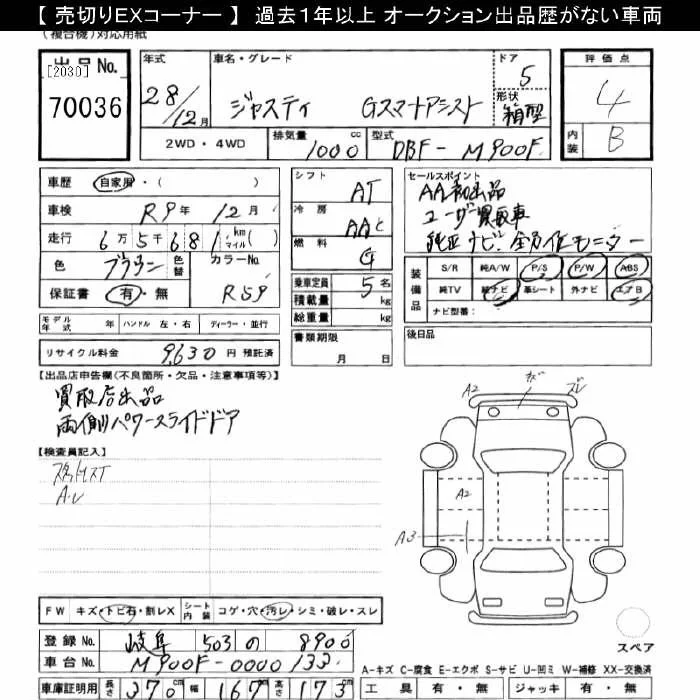 【 売切りEXコーナー 】 過去1年以上 オークション出品歴がない車両
(複合機)対応用紙
出品No. [2030] 70036
年式 28/12月
車名・グレード ジャスティ Gスマートアシスト
ドア 5
形状 箱型
評価点 4
内装 B
2WD・4WD
排気量 1000 cc
型式 DBF-M900F
車歴 自家用・( )
車検 R9年12月
走行 6万5千681 km マイル( )
色 ブラウン 色替 カラーNo. R59
保証書 有・無
シフト AT
冷房 AAC
燃料 G
乗車定員 5名
積載量 kg
総重量 kg
書類期限 月 日
セールスポイント
AA初出品
ユーザー買取車
純正ナビ、全方位モニター
装備品 S/R 純A/W P/S P/W ABS
純TV 純ナビ 革シート 外ナビ エアB
ナビ型番:
モデル年式 年 ハンドル 左・右 ディーラー・並行
リサイクル料金 9,630 円 預託済
後日品
【出品店申告欄(不良箇所・欠品・注意事項等)】
買取店出品
両側パワースライドドア
【検査員記入】
A・レ
A2 キズ ズレ
A2
A3
スペア
FW キズ・トビ石・割レX シート内装 コゲ・穴・汚レ・シミ・破レ・スレ
登録No. 岐阜 503 の 8900
車台No. M900F-0000132
A-キズ C-腐食 E-エクボ S-サビ U-凹ミ W-補修 XX-交換済
車庫証明用 長さ 370cm 幅 167cm 高さ 173cm
工具 有・無 ジャッキ 有・無